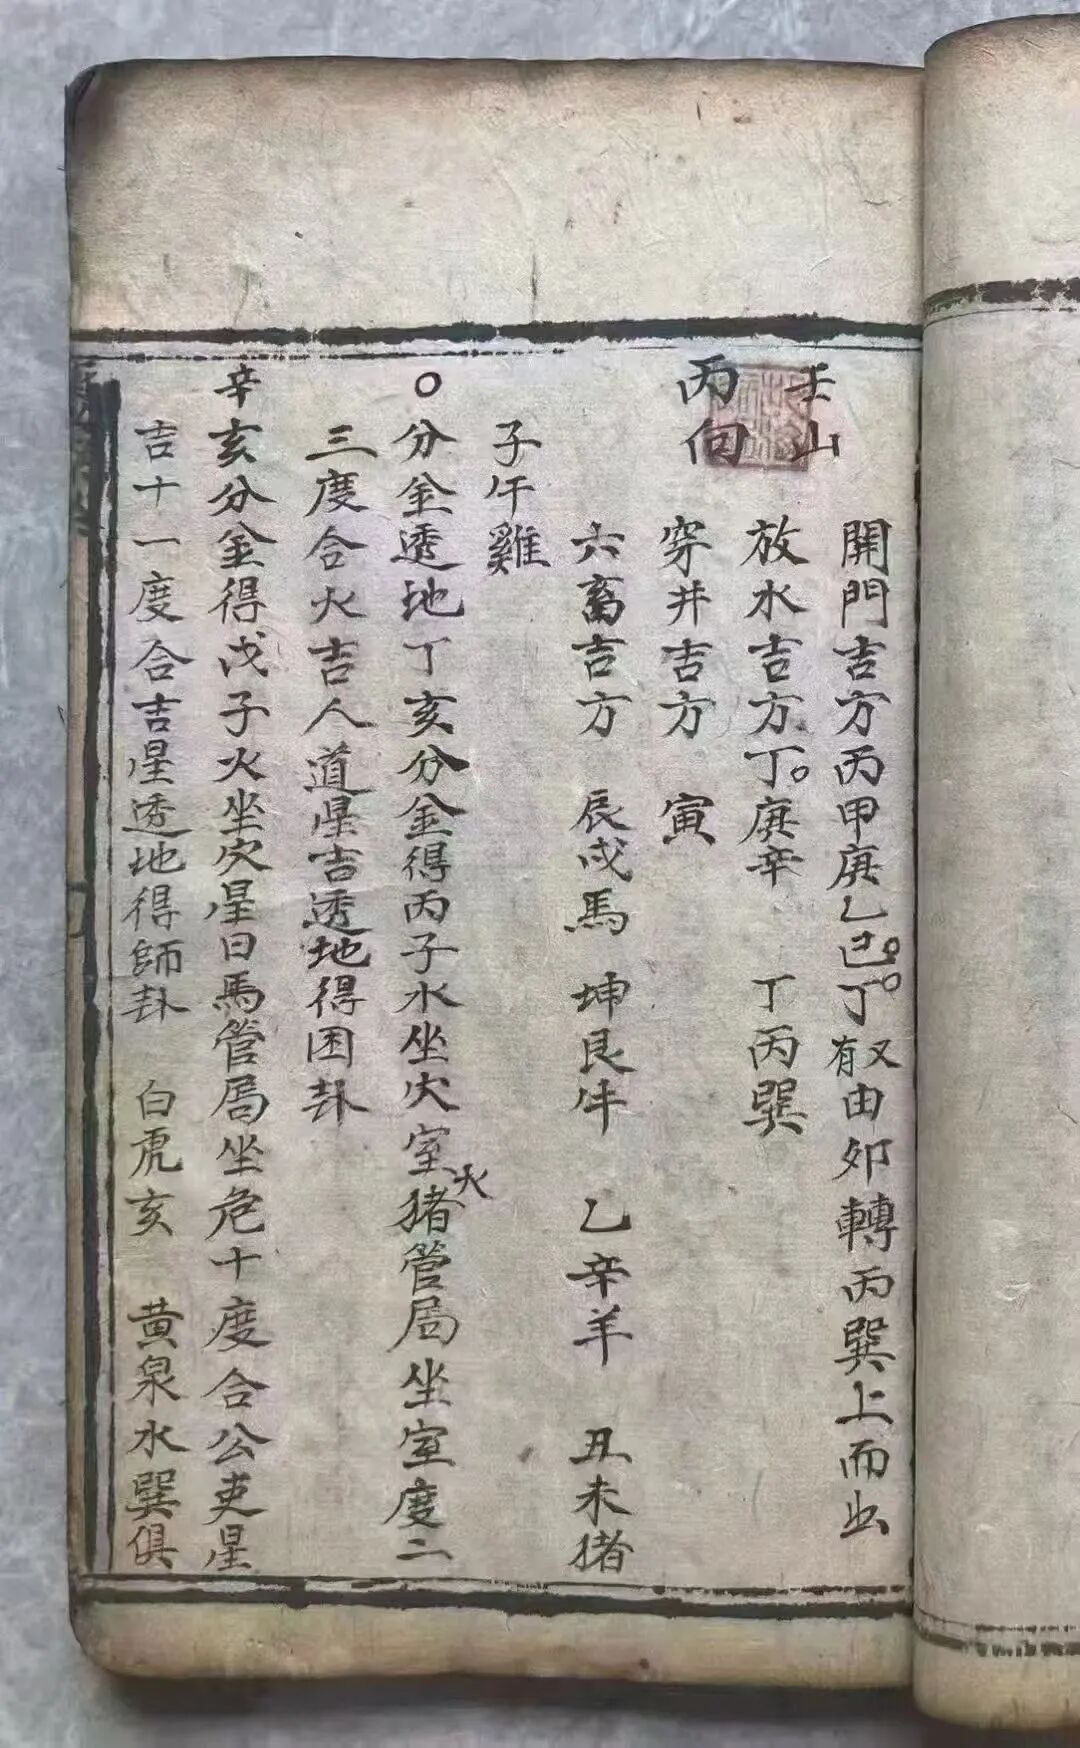 壬山
丙向
開門吉方丙甲庚乙巳丁又有由卯轉丙巽上而出
放水吉方丁庚辛 丁丙巽
穿井吉方 寅
六畜吉方 辰戌馬 坤艮牛 乙辛羊 丑未猪
子午雞
○分金透地丁亥分金得丙子水坐穴室火猪管局坐室度二
三度合火吉人道星吉透地得困卦
辛亥分金得戊子火坐穴星日馬管局坐危十度合公吏星
吉十一度合吉星透地得師卦 白虎亥 黄泉水巽俱